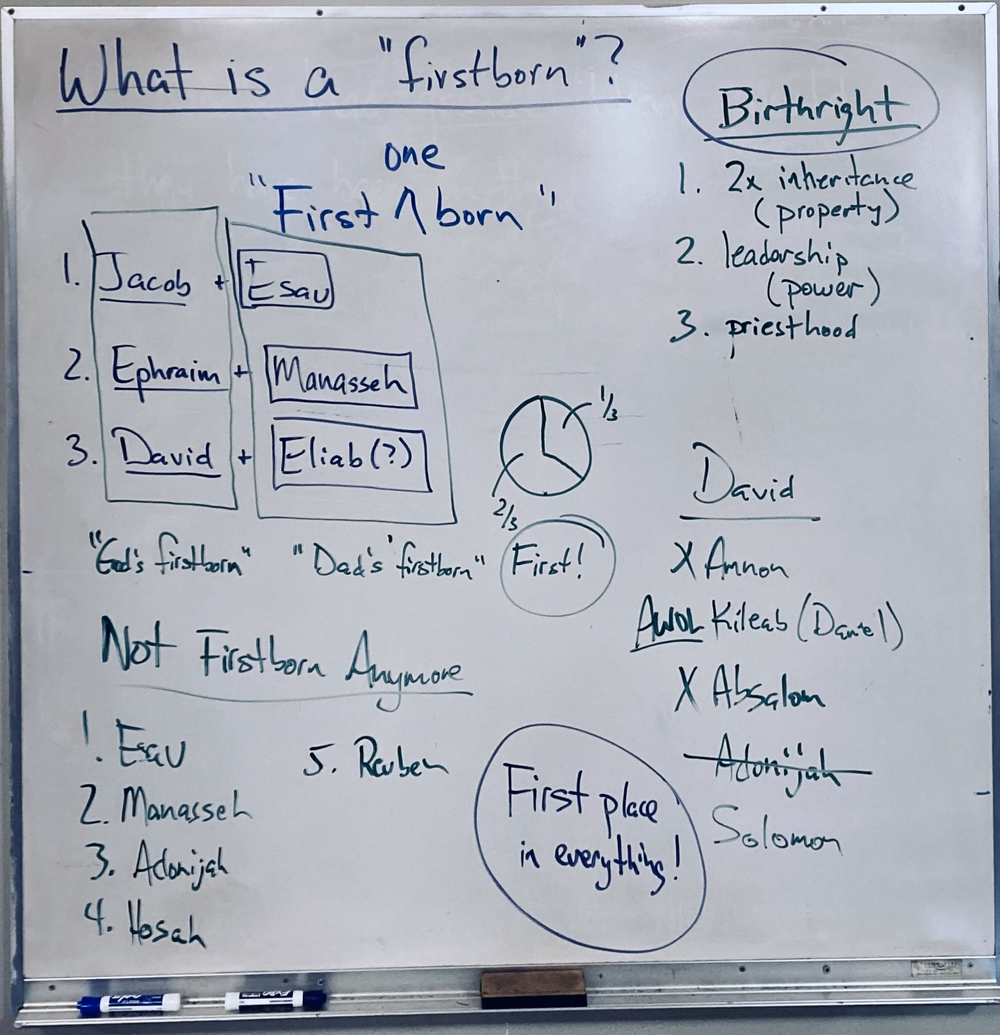 What is a "firstborn"?
one
"First ∧ born"
1. Jacob + Esau
2. Ephraim + Manasseh
3. David + Eliab(?)
"God's firstborn" "Dad's 'firstborn"
1/3
2/3
First!
Birthright
1. 2x inheritance
(property)
2. leadership
(power)
3. priesthood
Not Firstborn Anymore
1. Esau
2. Manasseh
3. Adonijah
4. Hosah
5. Reuben
First place
in everything!
David
X Amnon
AWOL Kileab (Daniel)
X Absalom
Adonijah
Solomon
EXPO